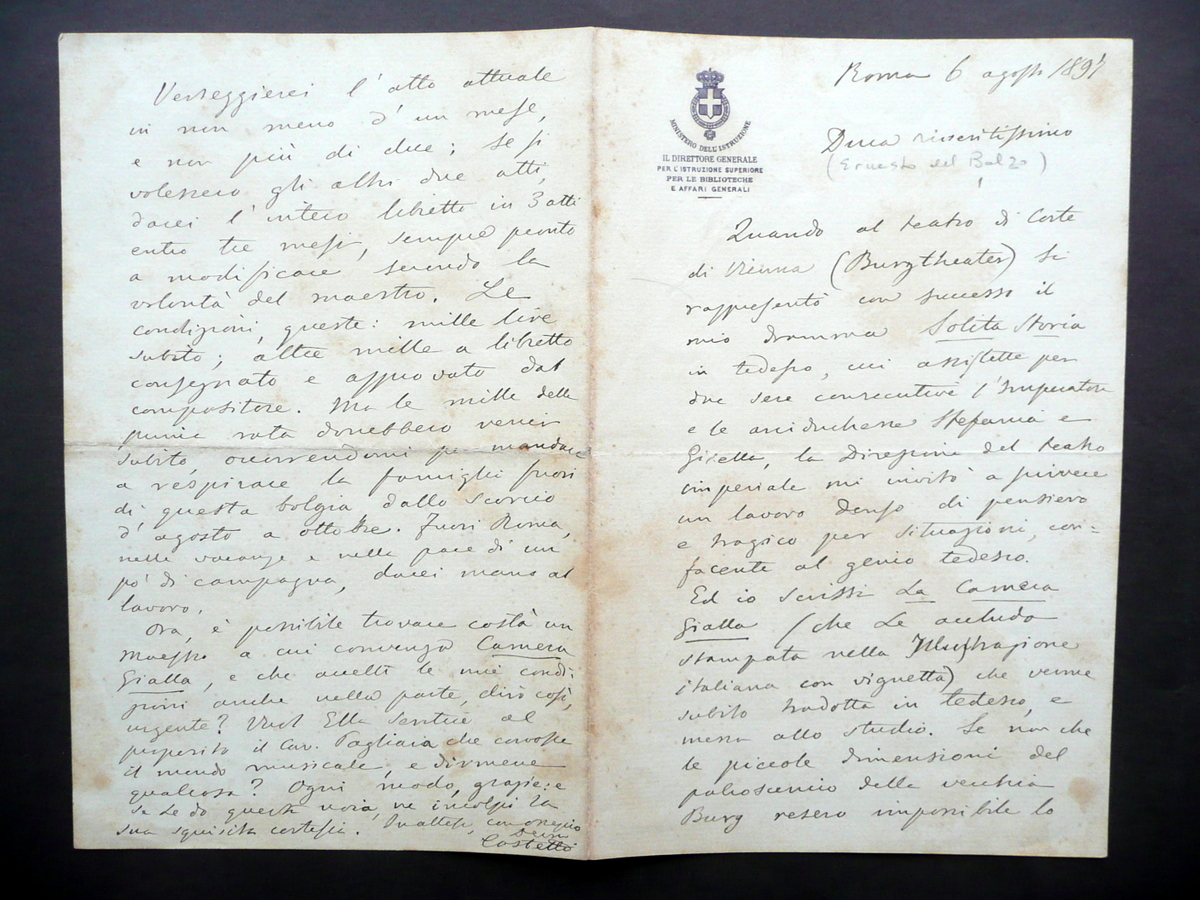 Roma 6 agosto 1897
MINISTERO DELL'ISTRUZIONE
IL DIRETTORE GENERALE
PER L'ISTRUZIONE SUPERIORE
PER LE BIBLIOTECHE
E AFFARI GENERALI
Duca riveritissimo
(Ernesto del Balzo)
Quando al teatro di Corte
di Vienna (Burgtheater) si
rappresentò con successo il
mio dramma Solita Storia
in tedesco, cui assistette per
due sere consecutive l'Imperatore
e le arciduchesse Stefania e
Gisella, la Direzione del teatro
imperiale mi invitò a scrivere
un lavoro denso di pensiero
e tragico per situazioni, con=
facente al genio tedesco.
Ed io scrissi La Camera
Gialla (che Le accludo
stampata nella Illustrazione
italiana con vignetta) che venne
subito tradotta in tedesco, e
messa allo studio. Se non che
le piccole dimensioni del
palcoscenico della vecchia
Burg resero impossibile lo
Verseggierei l'atto attuale
in non meno d'un mese,
e non più di due; se si
volessero gli altri due atti,
darei l'intero libretto in 3 atti
entro tre mesi, sempre pronto
a modificare secondo la
volontà del maestro. Le
condizioni, queste: mille lire
subito; altre mille a libretto
consegnato e approvato dal
compositore. Ma le mille della
prima rata dovrebbero venir
subito, occorrendomi per mandare
a respirare la famiglia fuori
di questa bolgia dallo scorcio
d'agosto a ottobre. Fuori Roma,
nelle vacanze e nella pace di un
pò di campagna, darei mano al
lavoro.
Ora, è possibile trovare costà un
maestro a cui convenga Camera
Gialla, e che accetti le mie condi=
zioni anche nella parte, dirò così,
urgente? Vuol Ella sentire al
proposito il Cav. Pagliara che conosce
il mondo musicale, e dirmene
qualcosa? Ogni modo, grazie; e
se Le do questa noia, ne incolpi la
sua squisita cortesia. In attesa, con ossequio
Costetti